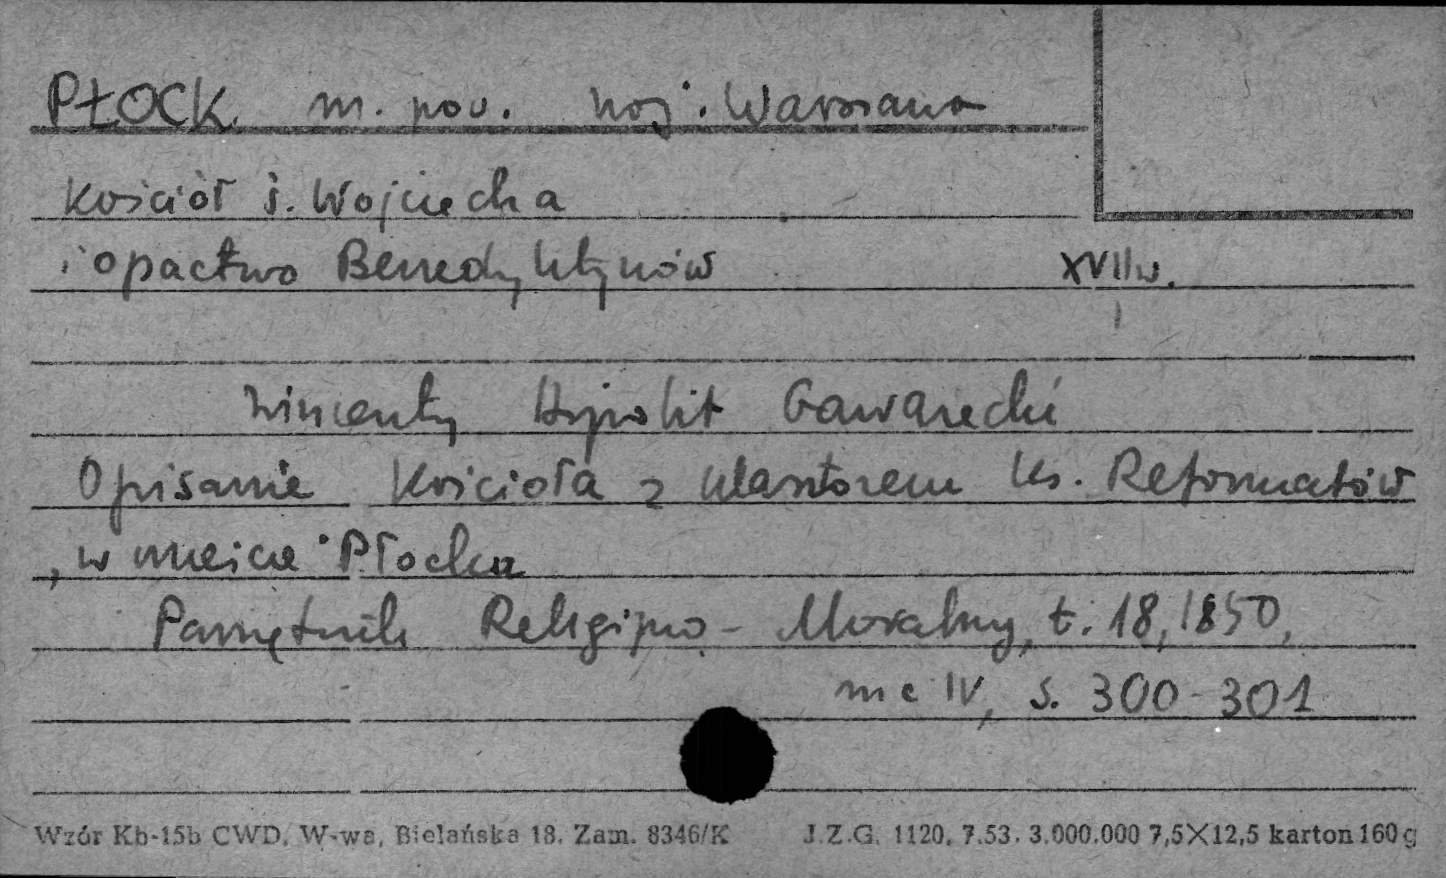 PŁOCK m. pow. woj. Warszawa
Kościół ś. Wojciecha
i opactwo Benedyktynów XVIIw.
Wincenty Hipolit Gawarecki
Opisanie Kościoła z klasztorem ks. Reformatów
w mieście Płocku
Pamiętnik Religijno-Moralny, t. 18, 1850,
nr IV, s. 300-301
Wzór Kb-15b CWD. W-wa, Bielańska 18. Zam. 8346/K J.Z.G. 1120. 7.53. 3.000.000 7,5×12,5 karton 160 g